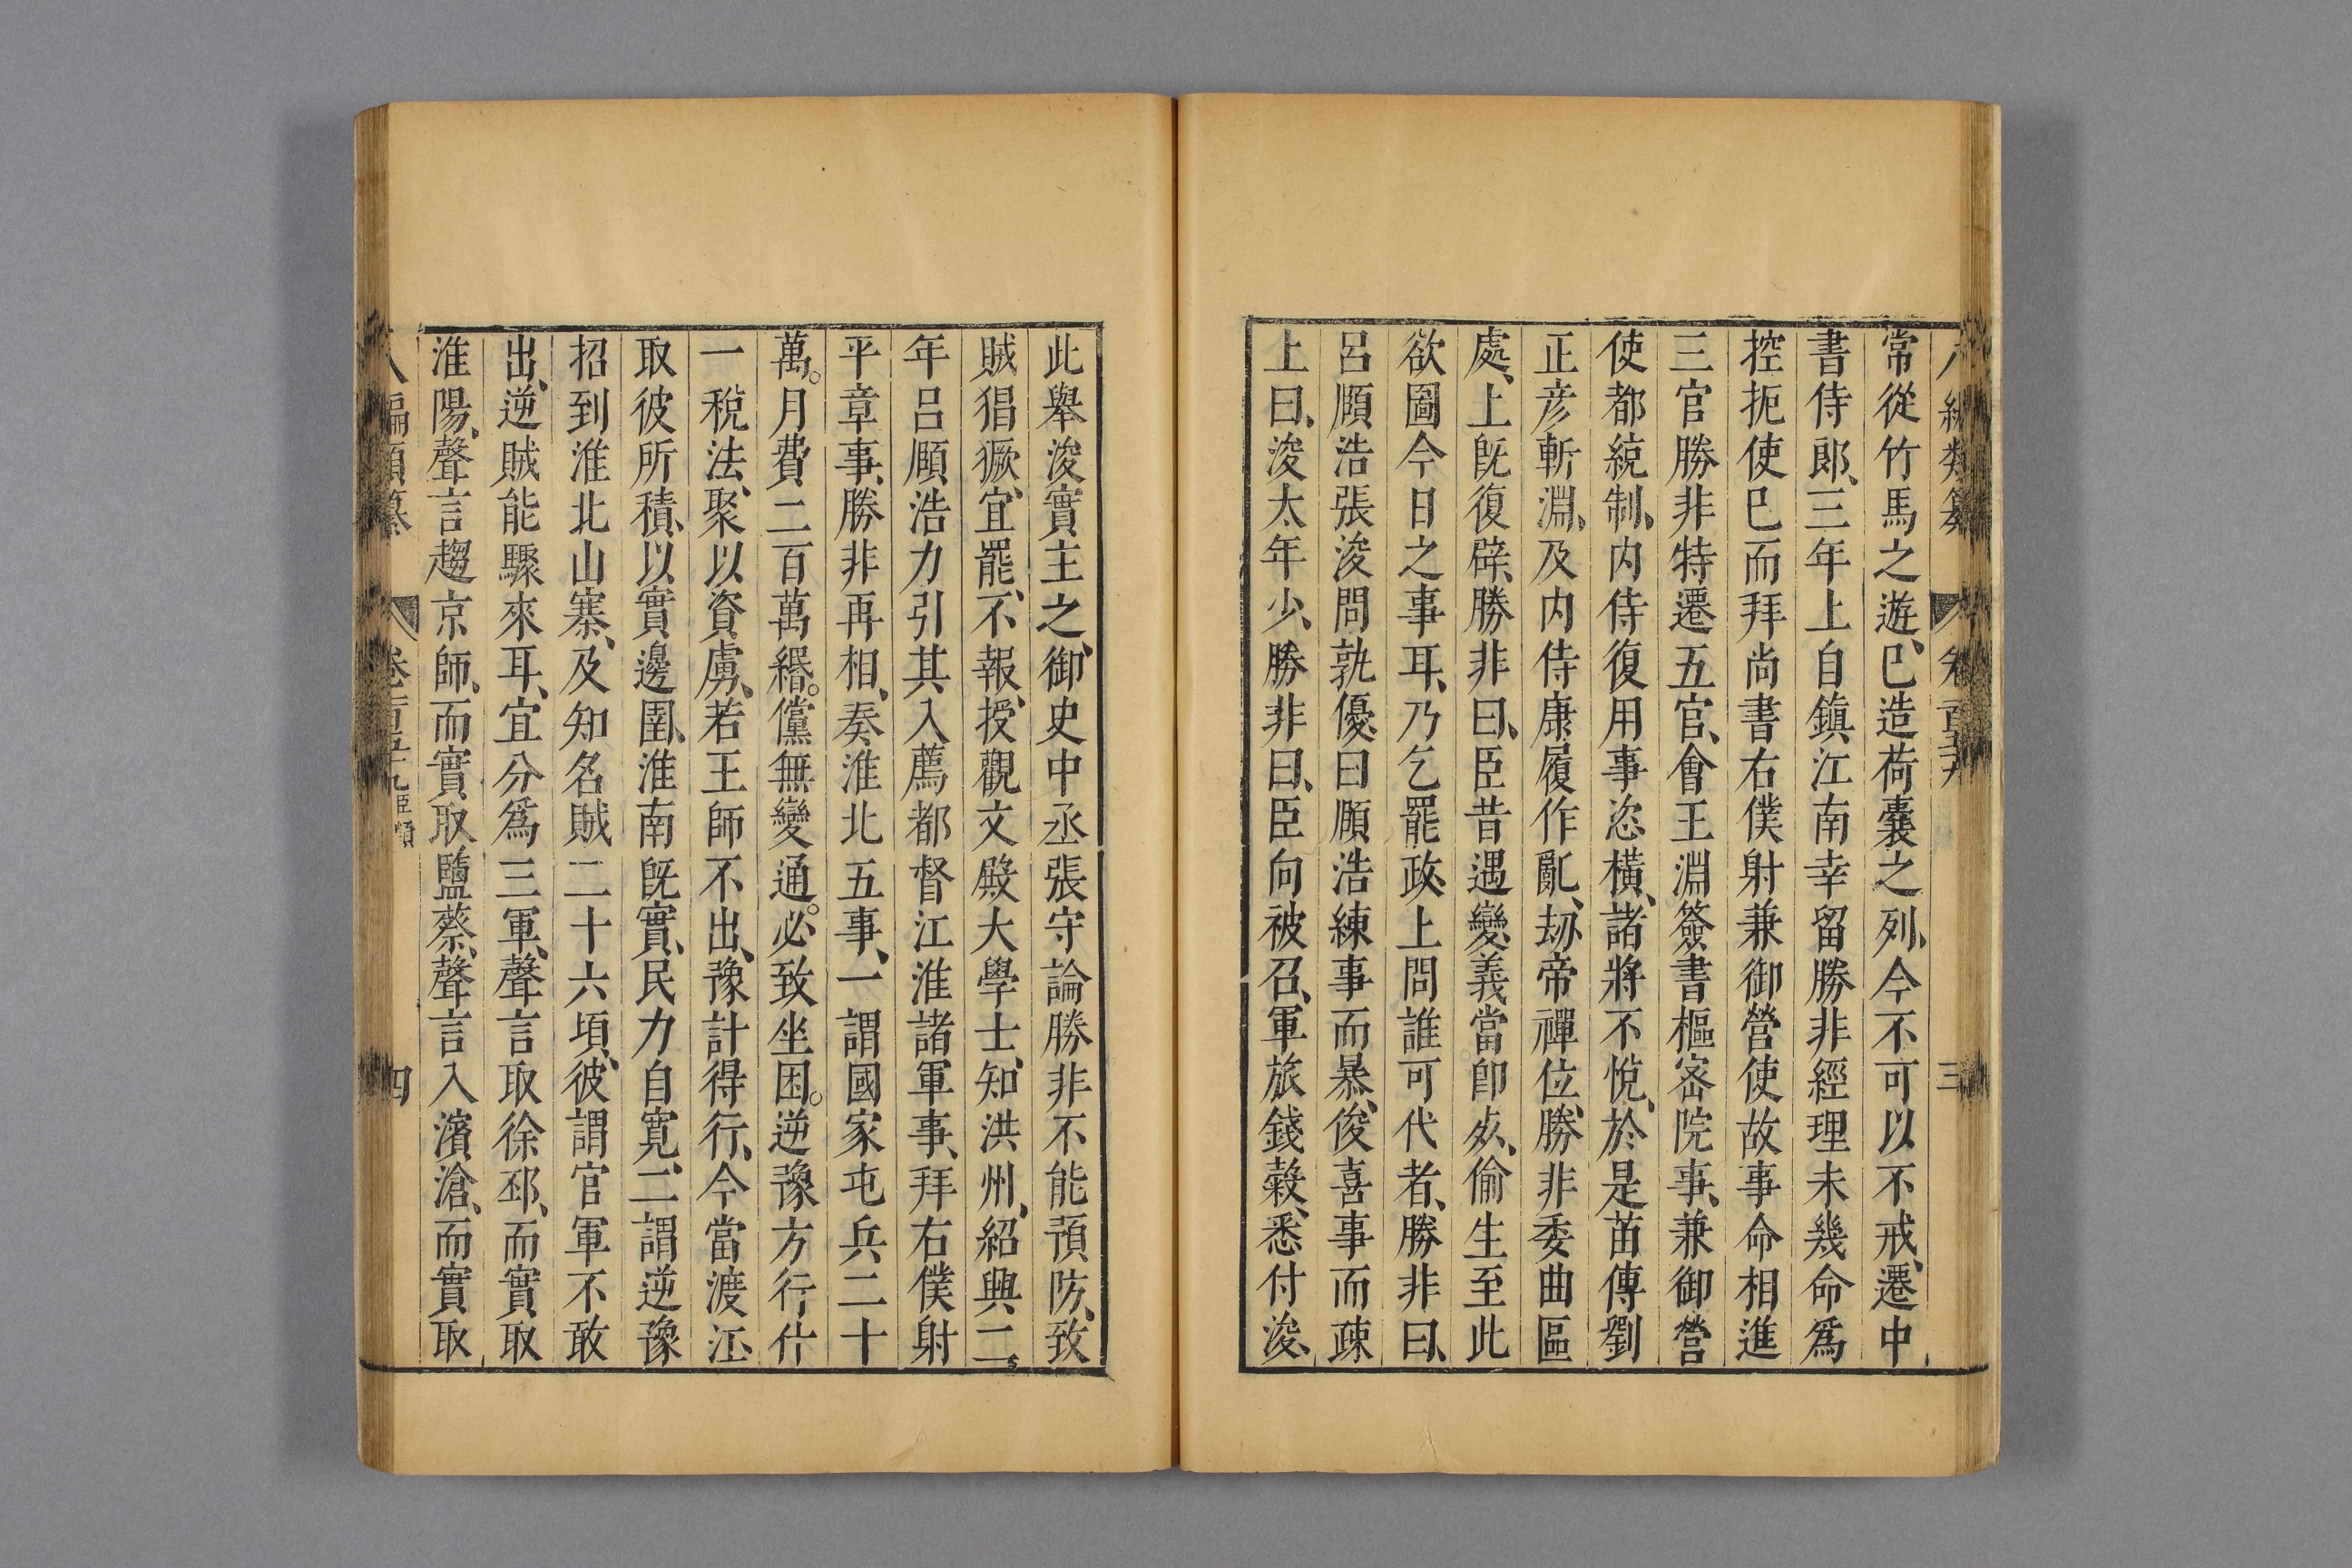 常從竹馬之遊、巳造荷囊之列、今不可以不戒、遷中
書侍郎、三年上自鎮江南幸留勝非經理未幾命爲
控扼使巳而拜尚書右僕射兼御營使故事命相進
三官勝非特遷五官、會王淵簽書樞宻院事、兼御營
使都統制、内侍復用事恣橫、諸將不悅、於是苗傳劉
正彥斬淵、及内侍康履作亂、劫帝禪位、勝非委曲區
處、上旣復辟、勝非曰、臣昔遇變義當卽死、偷生至此
欲圖今日之事耳、乃乞罷政、上問誰可代者、勝非曰、
呂頤浩張浚問孰優曰頤浩練事而暴、俊喜事而疎
上曰、浚太年少、勝非曰、臣向被召、軍旅錢穀、悉付浚、
三
此舉浚實主之、御史中丞張守論勝非不能預防、致
賊猖獗、宜罷、不報、授觀文殿大學士、知洪州、紹興二
年呂頤浩力引其入薦都督江淮諸軍事、拜右僕射
平章事、勝非再相、奏淮北五事、一謂國家屯兵二十
萬。月費二百萬緡。儻無變通。必致坐困。逆豫方行什
一稅法、聚以資虜、若王師不出、豫計得行、今當渡江、
取彼所積、以實邊圉、淮南旣實、民力自寬、二謂逆豫
招到淮北山寨、及知名賊二十六頃、彼謂官軍不敢
出、逆賊能驟來耳、宜分爲三軍、聲言取徐邳、而實取
淮陽、聲言趨京師、而實取鹽蔡、聲言入濱滄、而實取
八編類纂 四